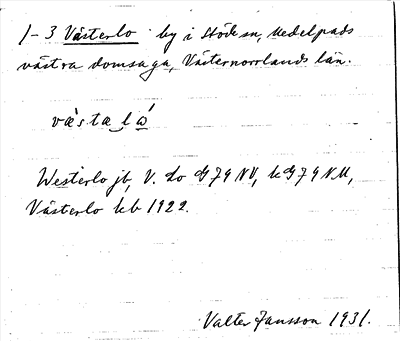 1-3 Västerlo by i Stöde sn, Medelpads
västra domsaga, Västernorrlands län.
västalo
Westerlo jb, V. Lo G79 NV, k G79 NM,
Västerlo kb 1922.
Valter Jansson 1931.